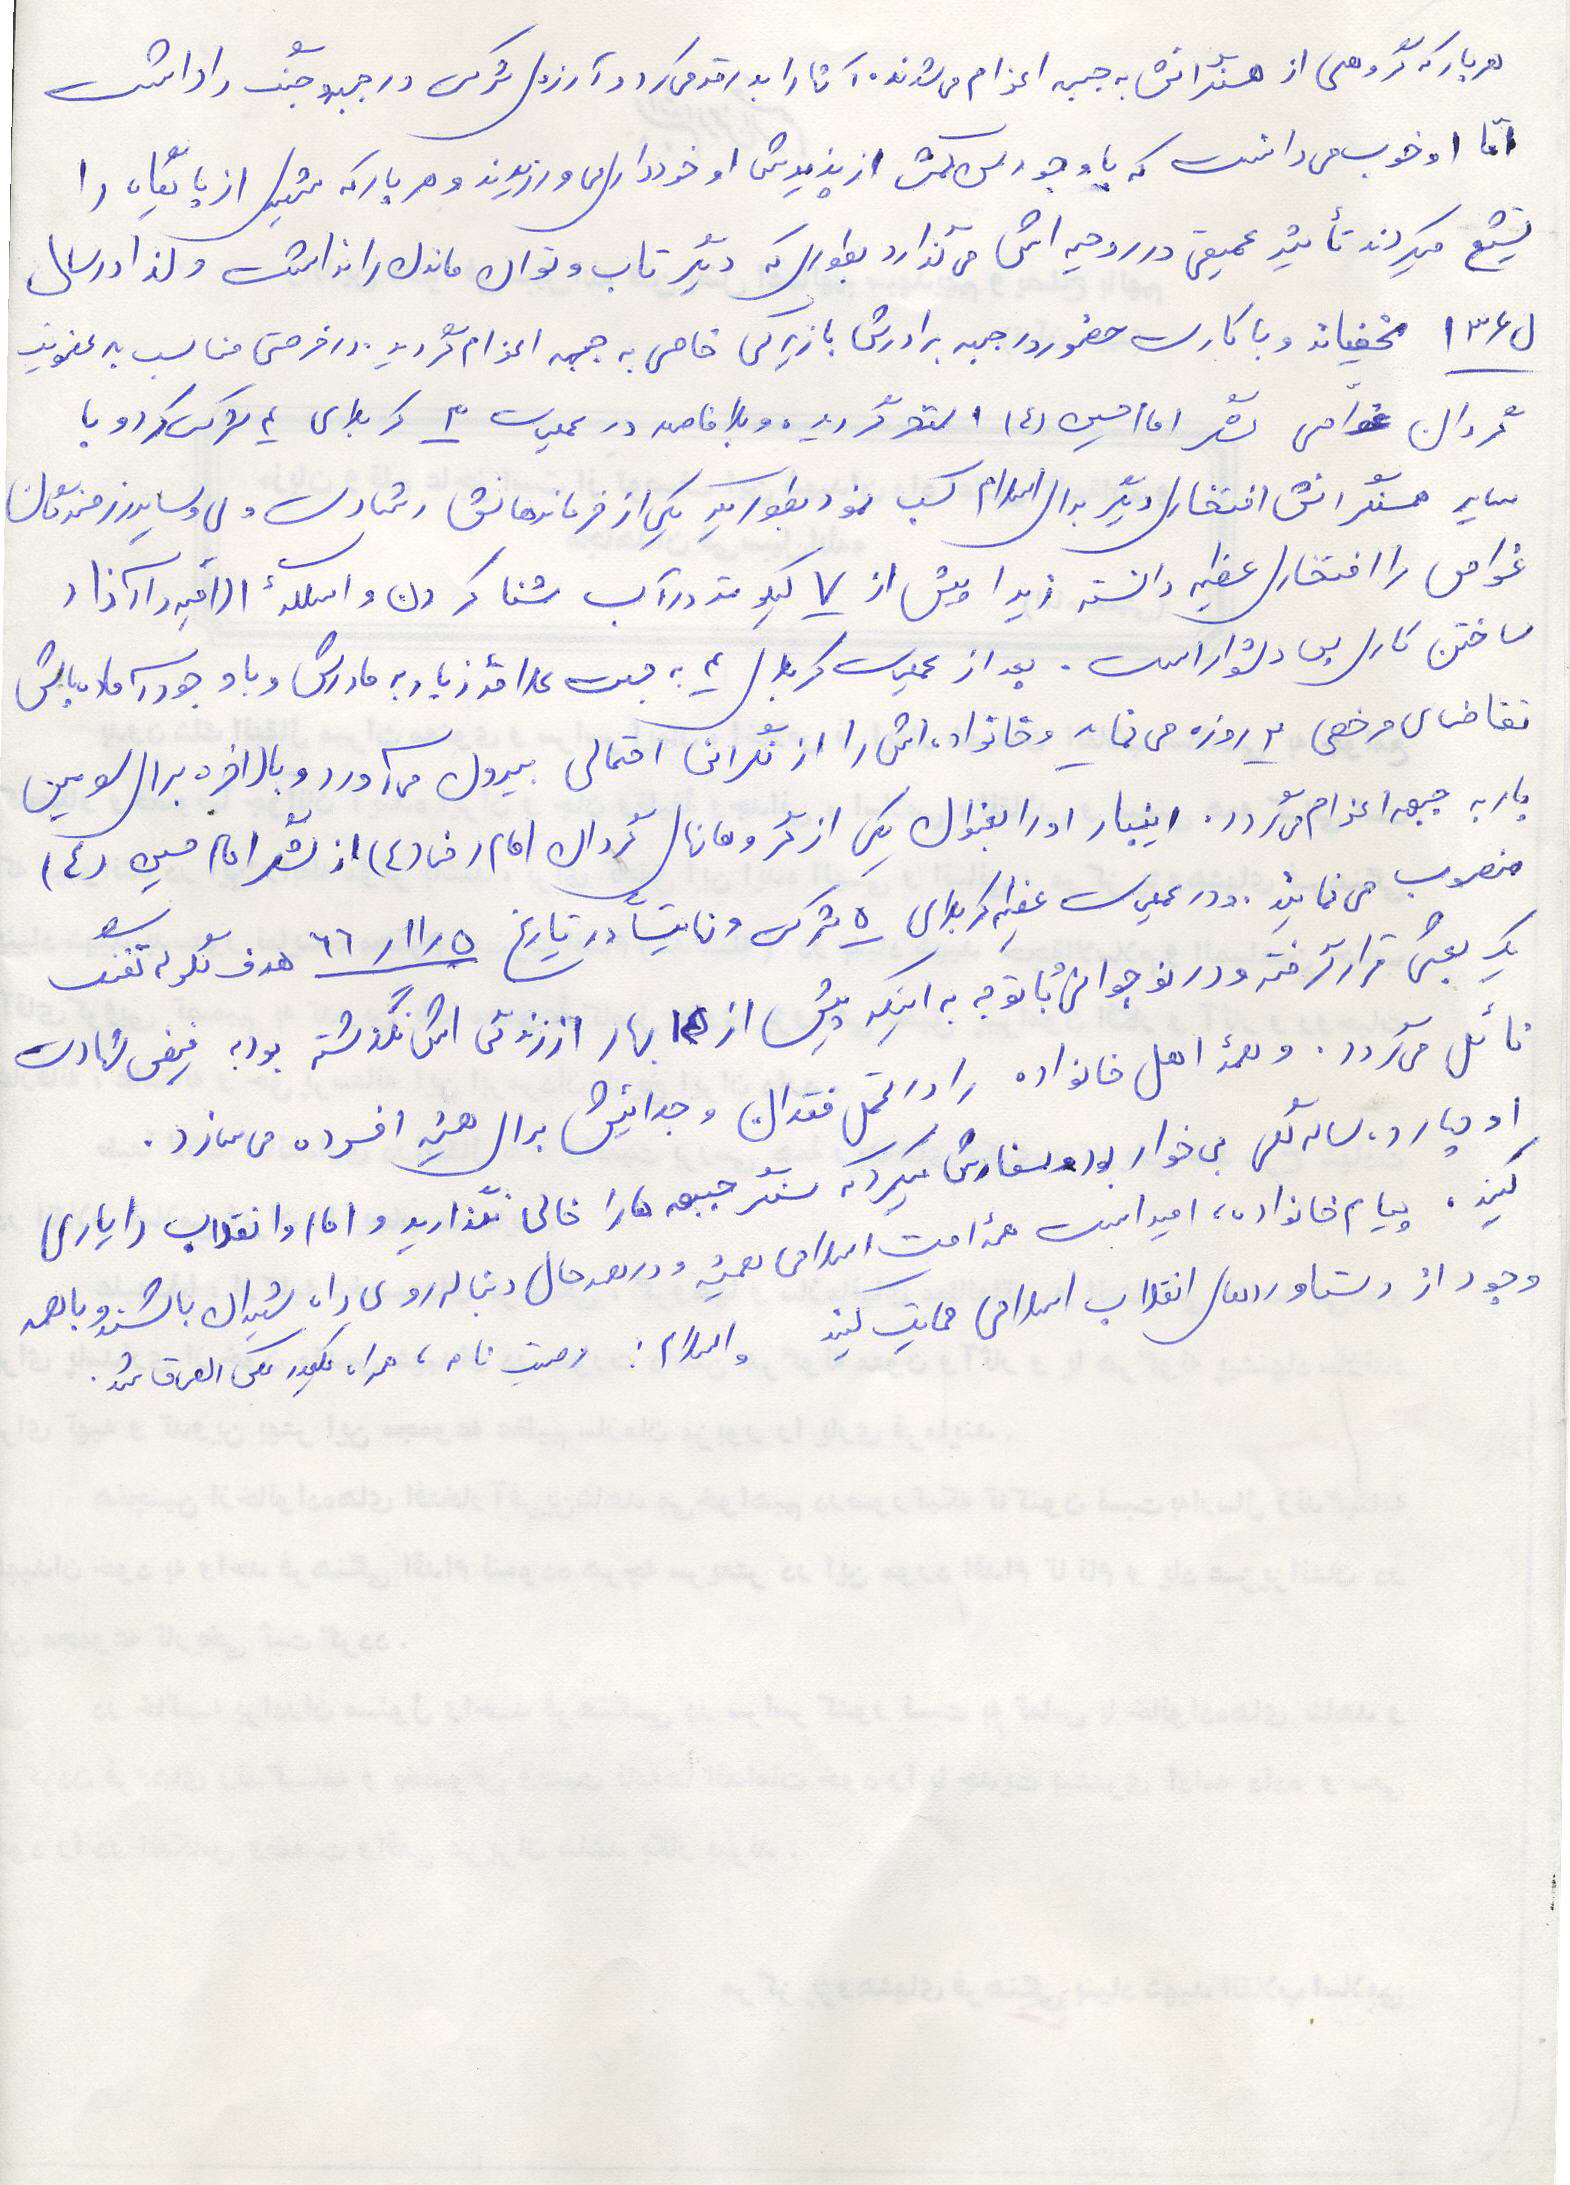 هر بار که گروهی از همسنگرانش به جبهه اعزام می‌شدند. آنها را بدرقه می‌کرد و آرزوی شرکت در جبهه و جنگ را داشت
امّا او خوب می‌دانست که با وجود سن کمش از پذیرش او خودداری می‌ورزیدند و هر بار که شهیدی از پایگاه را
تشیع میکردند تأثیر عمیقی در روحیه اش می‌گذارد بطوری که دیگر تاب و توان ماندن را نداشت و لذا در سال
۱۳۶۵ مخفیانه و با کارت حضور در جبهه برادرش با زیرکی خاصی به جبهه اعزام گردید. در فرصتی مناسب به عضویت
گردان غوّاصی لشگر امام حسین (ع) مستقر گردید. و بلافاصله در عملیات کربلای ۴ شرکت کرد و با
سایر همسنگرانش افتخاری دیگر برای اسلام کسب نمود بطوریکه یکی از فرماندهانش رشادت وی و سایر رزمندگان
غواص را افتخاری عظیم دانسته زیرا بیش از ۷ کیلومتر در آب شنا کردن و اسکلهٔ الامیه را آزاد
ساختن کاری بس دشوار است. بعد از عملیات کربلای ۴ به جهت علاقه زیاد به مادرش و با وجود آماده باش
تقاضای مرخصی ۲ روزه می نماید و خانواده اش را از نگرانی احتمالی بیرون می‌آورد و بالاخره برای سومین
بار به جبهه اعزام می‌گردد. اینبار او را بعنوان یکی از گروهانهای گردان امام رضا (ع) از لشگر امام حسین (ع)
منصوب می نمایند. و در عملیات عظیم کربلای ۵ شرکت و نهایتاً در تاریخ ۶۶/۱۱/۵ هدف گلوله تفنگ
یک بعثی قرار گرفته و در نوجوانی با توجه به اینکه بیش از ۱۵ بهار از زندگی اش نگذشته بود به فیض شهادت
نائل می‌گردد. و همهٔ اهل خانواده را در تحمل فقدان و جدائیش برای همیشه افسرده می‌سازد.
او سفارش میکرد که سنگر جبهه ها را خالی نگذارید و امام و انقلاب را یاری
کنید. پیام خانواده، امید است همه امت اسلامی همیشه و در همه حال دنباله روی راه شهیدان باشند و با همه
وجود از دستاوردهای انقلاب اسلامی حمایت کنند والسلام: وصیت نامه، همراه